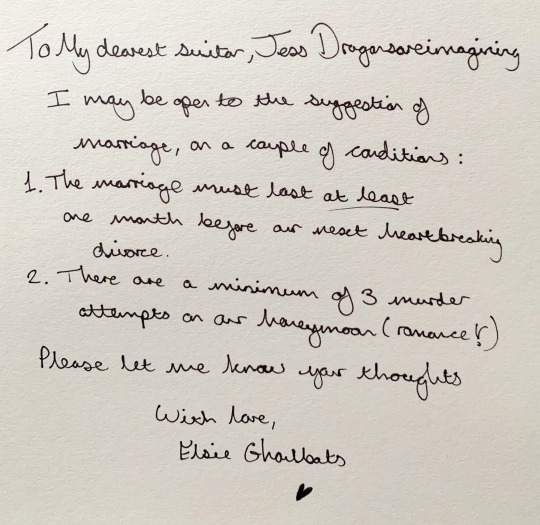 To My dearest suitor, Jess Dragonsareimagining
I may be open to the suggestion of
marriage, on a couple of conditions:
1. The marriage must last at least
one month before our next heartbreaking
divorce.
2. There are a minimum of 3 murder
attempts on our honeymoon (romance!)
Please let me know your thoughts
With love,
Elsie
♥